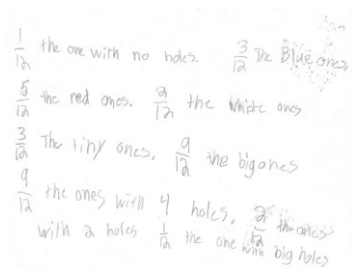 1/12 the one with no holes. 3/12 The Blue ones
5/12 the red ones. 2/12 the white ones
3/12 The tiny ones. 9/12 the big ones
9/12 the ones with 4 holes, 2/12 the ones
with 2 holes 1/12 the one with big holes